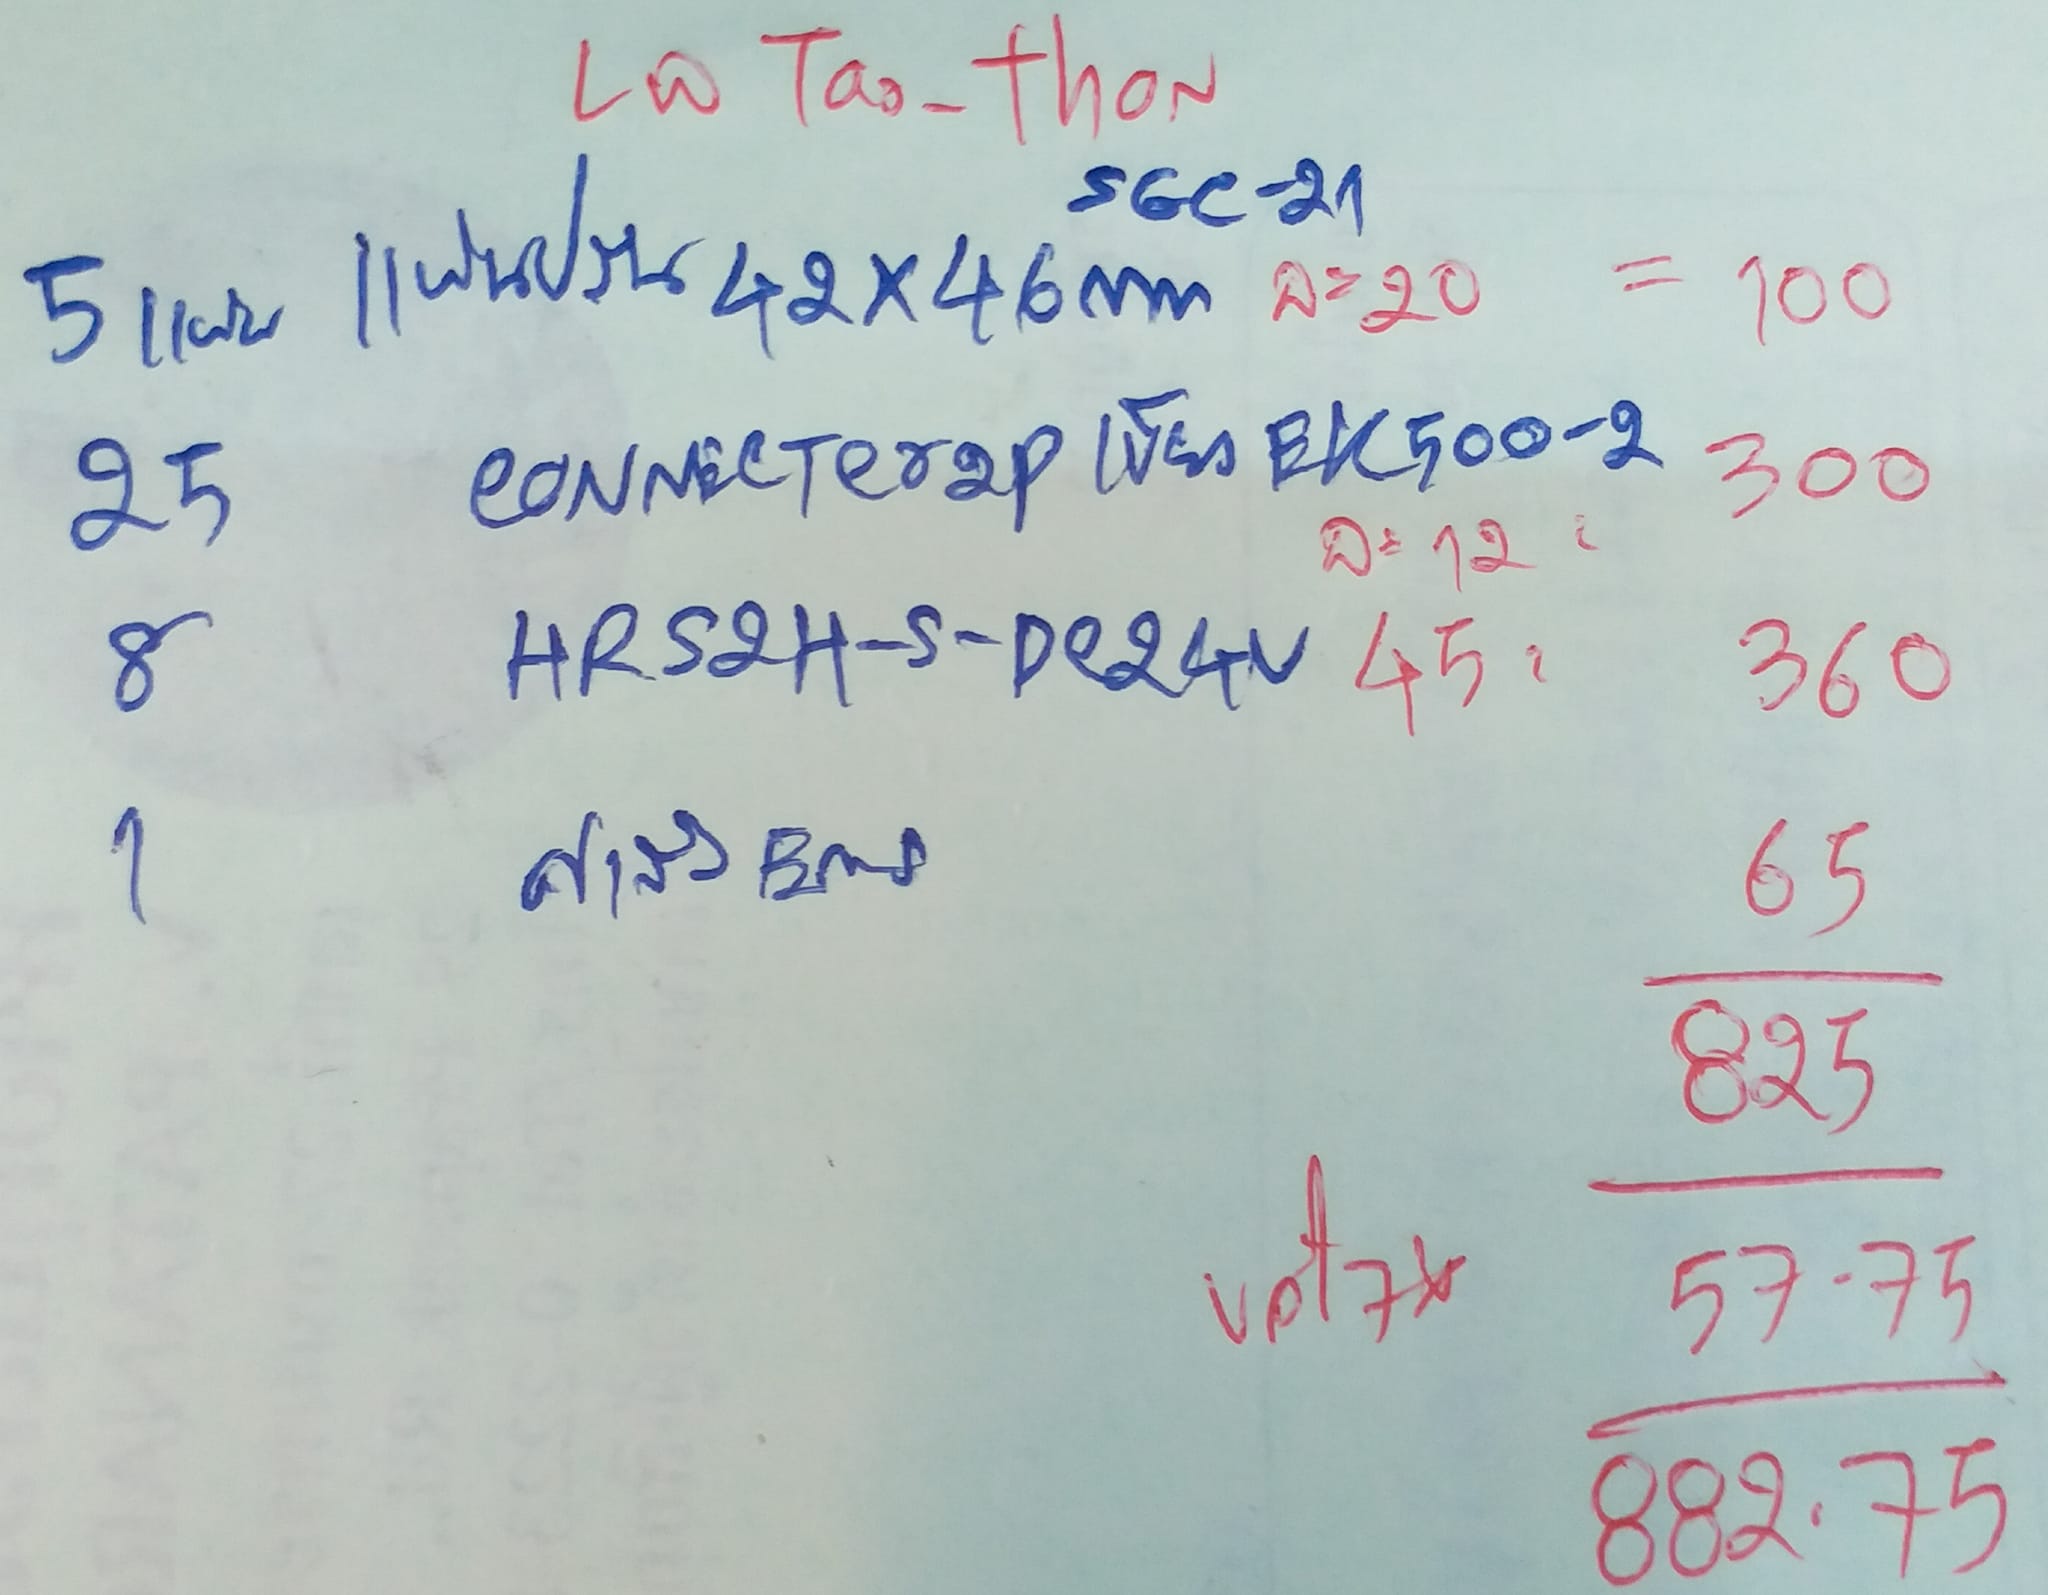 Tao-thon
SGC-21
5 แผ่น แผ่นปริ้น 42x46mm ล=20 = 100
25 CONNECTer2P เขียว EK500-2 300
ล=12
8 HRS2H-S-DC24V 45 360
1 ค่าส่ง Ems 65
825
vat7% 57.75
882.75